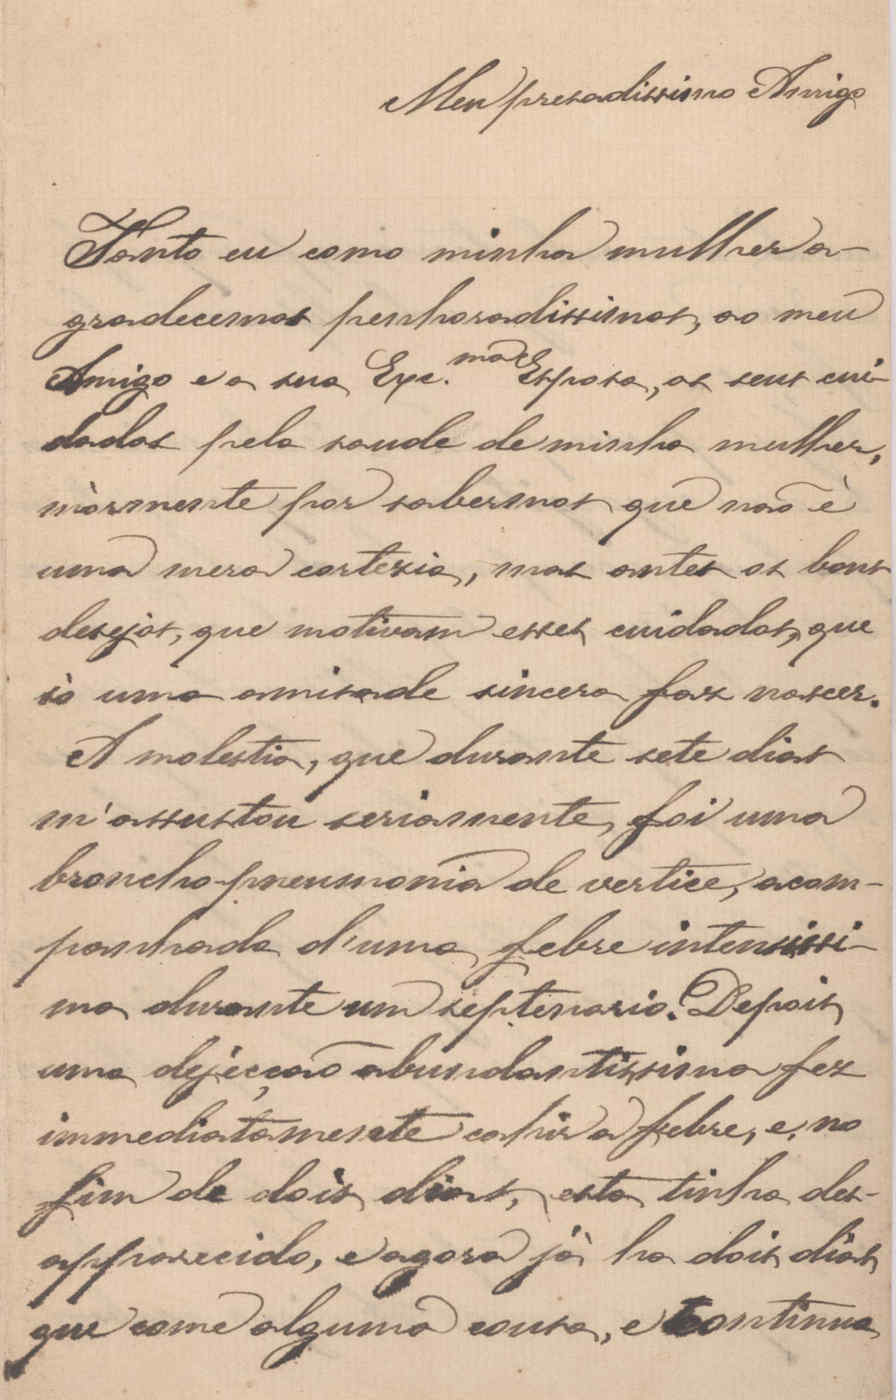 Meu presadissimo Amigo
Tanto eu como minha mulher a-
gradecemos penhoradissimos, ao meu
Amigo e a sua Exc.ma Esposa, os seus cui-
dados pela saude de minha mulher,
mòrmente por sabermos que não è
uma mera cortesia, mas antes os bons
desejos, que motivam esses cuidados, que
sò uma amisade sincera faz nascer.
A molestia, que durante sete dias
m'assustou seriamente, foi uma
broncho-pneumonia de vertice, acom-
panhada d'uma febre intensissi-
ma durante um septenario. Depois
uma dejécção abundantissima fez
immediatamente cahir a febre, e, no
fim de dois dias, esta tinha des-
apparecido, e agora jà ha dois dias
que come alguma cousa, e continua